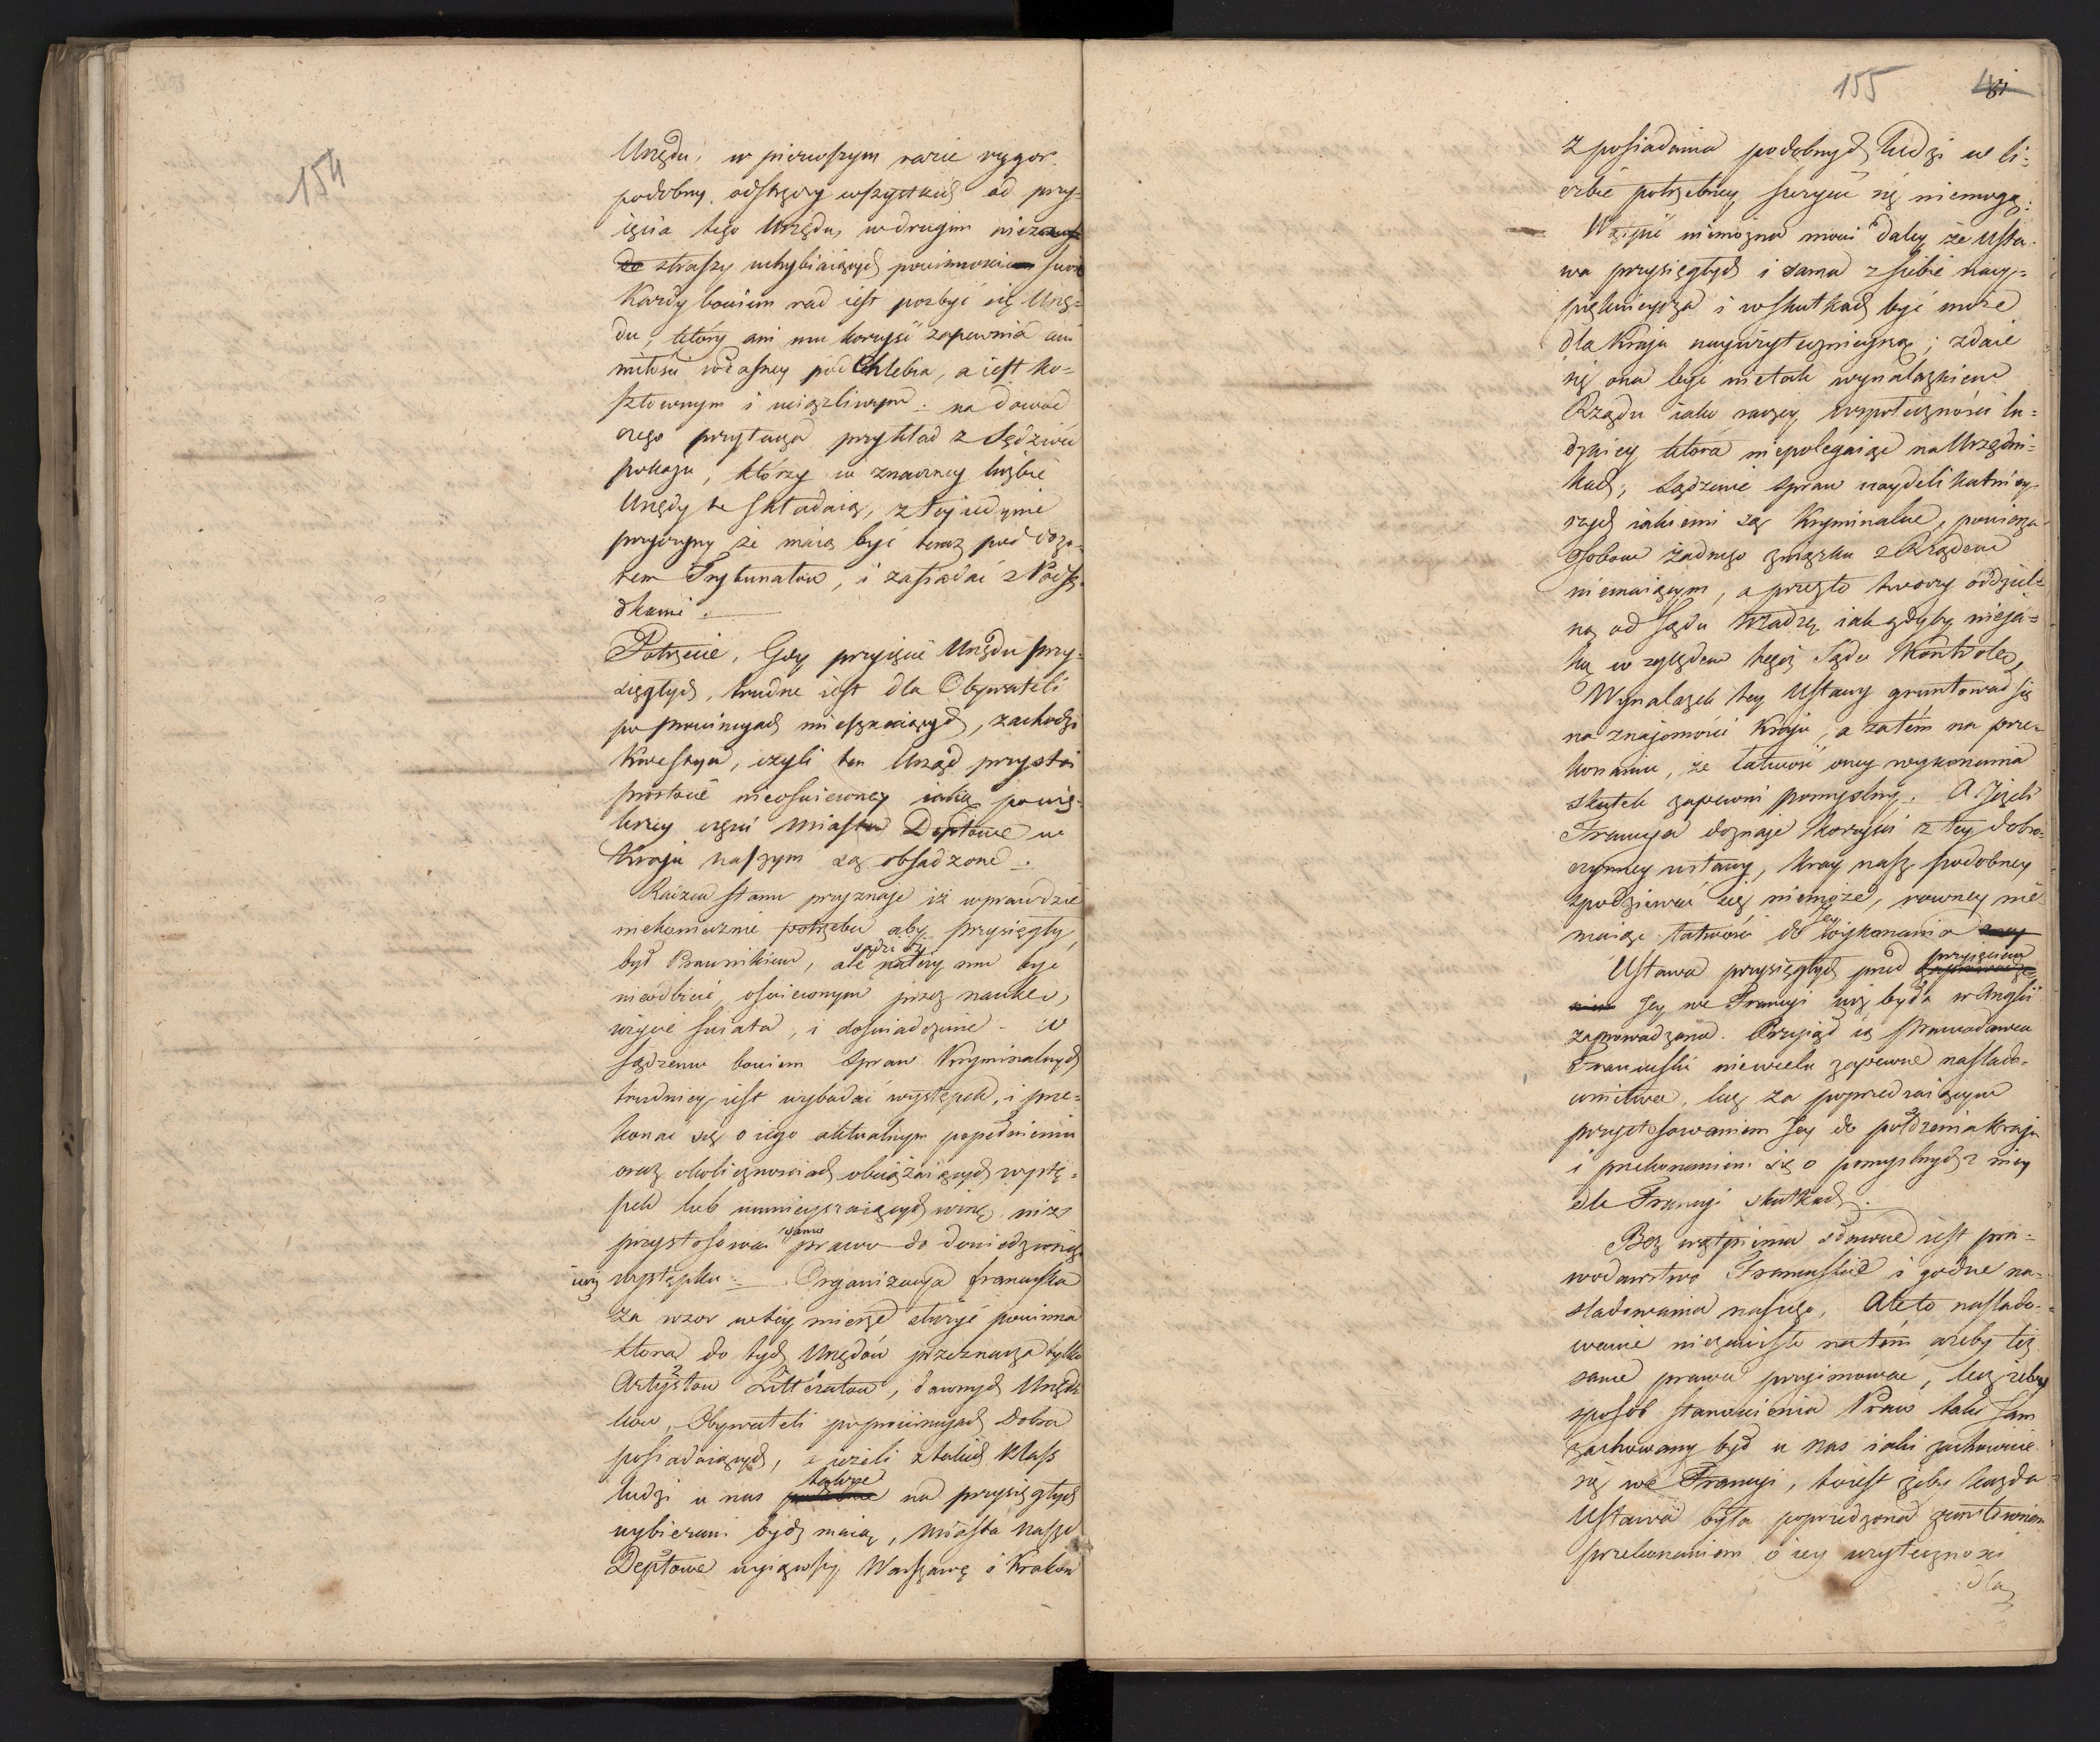 154
Urzędu, w pierwszym razie rygor
podobny odstręczy wszystkich od przy-
ięcia tego Urzędu, w drugim nie
straszy uchybiaiących powinności swoie
Każdy bowiem rad iest pozbyć się Urzę=
du, który ani mu korzyść zapewnia ani
miłości własney pochlebia, a iest ko=
sztownym i uciążliwym: na dowód
czego przytacza przykład z Sędziów
pokoju, którzy w znaczney liczbie
Urzędy te składaią, z tey iedynie
przyczyny że maią być teraz pod dozo-
rem Trybunałów, i zasiadać z Podsę-
dkami.
Potrzecie, Gdy przyięcie Urzędu przy-
sięgłych, trudne iest dla Obywateli
po prowincyach mieszkaiących, zachodzi
kwestya, czyli ten Urząd przystoi
prostocie nieoświeconey iaką powię-
kszey części Miasta Deptowe w
Kraju naszym są obsadzone.
Radzca Stanu przyznaje iż wprawdzie
niekoniecznie potrzeba aby przysięgły
był Prawnikiem, ale należy mu być
nieodbicie oświeconym przez naukę,
użycie świata, i doświadczenie. W
sądzeniu bowiem spraw Kryminalnych
trudniey iest wybadać występek, i prze=
konać się o iego aktualnym popełnieniu
oraz okolicznościach obciążaiących wystę=
pek lub umnieyszaiących winę, niż
przystosować samo prawo do dowiedzionego
iuż występku. Organizacya francuska
za wzór w tey mierze służyć powinna
która do tych Urzędów przeznacza tylko
Artystów Litteratów, dawnych Urzęd
ków, Obywateli po prowincyach Dobra
posiadaiących, a ieżeli z takich klass
ludzi u nas także na przysięgłych
wybierani bydź maią, Miasta nasze
Deptowe wyiąwszy Warszawę i Kraków
155
z posiadania podobnych ludzi w li=
czbie potrzebney szczycić się niemogą.
Wątpić niemożna mówi daley że Usta-
wa przysięgłych i sama z siebie nay=
pięknieysza i w skutkach być może
dla Kraju nayużytecznieyszą; zdaie
się ona być nietak wynalazkiem
Rządu iako raczey społeczności lu=
dzkiey która niepolegaiąc na Urzędni=
kach, sądzenie spraw naydelikatniey-
szych iakiemi są Kryminalne, powierza
osobom żadnego związku z Rządem
niemaiącym, a przezto tworzy oddziel=
ną od Sądu władzę iak gdyby nieja=
ką względem tegoż Sądu Kontrolę,
Wynalazek tey Ustawy gruntował się
na znajomości Kraju, a zatém na prze-
konaniu, że łatwość oney wykonania
skutek zapewni pomyślny. A Jeżeli
Francya doznaje korzyści z tey dobro-
czynney ustawy, kray nasz podobney
spodziewać się niemoże, rowney nie
maiąc łatwości do Jey wykonania
Ustawa przysięgłych przed przyięciem
Jey we Francyi iuż była w Anglii
zaprowadzona. Przyiął ią Prawodawca
Francuski niewcelu zapewne naślado-
wnictwa, lecz za poprzedzaiącym
przystosowaniem Jey do położenia kraju
i przekonaniem się o pomyślnych z niey
dla Francyi skutkach.
Bez wątpienia sławne iest pra=
wodawstwo Francuskie i godne na-
śladowania naszego, Ale to naślado-
wanie niezawisło natém ażeby też
same prawa przyimować, lecz żeby
sposób stanowienia Praw taki sam
zachowany był u nas iaki zachowuie
się we Francyi, toiest żeby każda
Ustawa była poprzedzona gruntownem
przekonaniem o iey użyteczności
dla